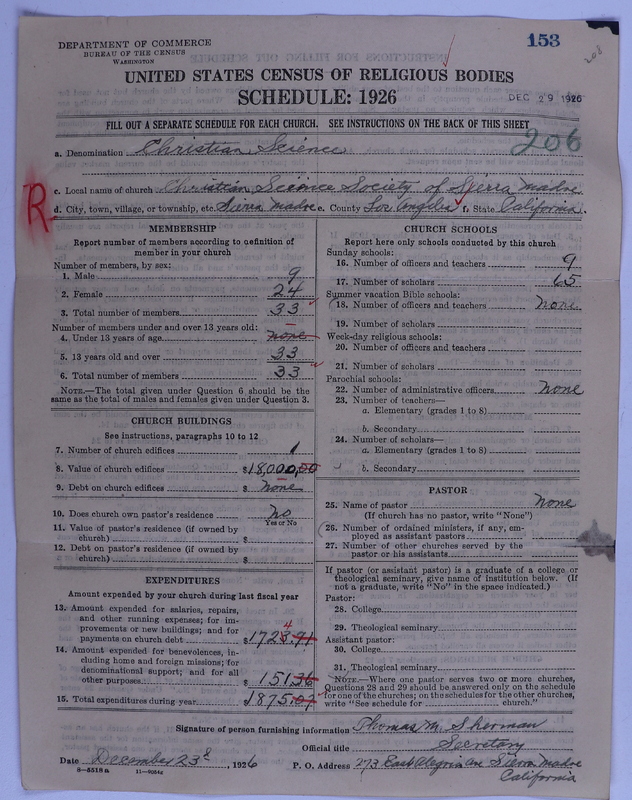 DEPARTMENT OF COMMERCE
BUREAU OF THE CENSUS
WASHINGTON
153
208
UNITED STATES CENSUS OF RELIGIOUS BODIES
SCHEDULE: 1926
DEC 29 1926
FILL OUT A SEPARATE SCHEDULE FOR EACH CHURCH. SEE INSTRUCTIONS ON THE BACK OF THIS SHEET
206
a. Denomination Christian Science
c. Local name of church Christian Science Society of Sierra Madre
R
d. City, town, village, or township, etc. Sierra Madre e. County Los Angeles f. State California
MEMBERSHIP
Report number of members according to definition of member in your church
Number of members, by sex:
1. Male 9
2. Female 24
3. Total number of members 33
Number of members under and over 13 years old:
4. Under 13 years of age none
5. 13 years old and over 33
6. Total number of members 33
NOTE.—The total given under Question 6 should be the same as the total of males and females given under Question 3.
CHURCH BUILDINGS
See instructions, paragraphs 10 to 12
7. Number of church edifices 1
8. Value of church edifices $18,000.00
9. Debt on church edifices $ none
10. Does church own pastor's residence no
Yes or No
11. Value of pastor's residence (if owned by church) $
12. Debt on pastor's residence (if owned by church) $
EXPENDITURES
Amount expended by your church during last fiscal year
13. Amount expended for salaries, repairs, and other running expenses; for improvements or new buildings; and for payments on church debt $1723.71
4
14. Amount expended for benevolences, including home and foreign missions; for denominational support; and for all other purposes $ 151.36
15. Total expenditures during year $1875.07
CHURCH SCHOOLS
Report here only schools conducted by this church
Sunday schools:
16. Number of officers and teachers 9
17. Number of scholars 65
Summer vacation Bible schools:
18. Number of officers and teachers none
19. Number of scholars
Week-day religious schools:
20. Number of officers and teachers
21. Number of scholars
Parochial schools:
22. Number of administrative officers none
23. Number of teachers—
a. Elementary (grades 1 to 8)
b. Secondary
24. Number of scholars—
a. Elementary (grades 1 to 8)
b. Secondary
PASTOR
25. Name of pastor none
(If church has no pastor, write "None")
26. Number of ordained ministers, if any, employed as assistant pastors
27. Number of other churches served by the pastor or his assistants
If pastor (or assistant pastor) is a graduate of a college or theological seminary, give name of institution below. (If not a graduate, write "No" in the space indicated.)
Pastor:
28. College
29. Theological seminary
Assistant pastor:
30. College
31. Theological seminary
NOTE.—Where one pastor serves two or more churches, Questions 28 and 29 should be answered only on the schedule for one of the churches; on the schedules for the other churches, write "See schedule for church."
Signature of person furnishing information Thomas M. Sherman
Official title Secretary
Date December 23d, 1926
P. O. Address 273 East Alegria Ave Sierra Madre
California
8—5518 a